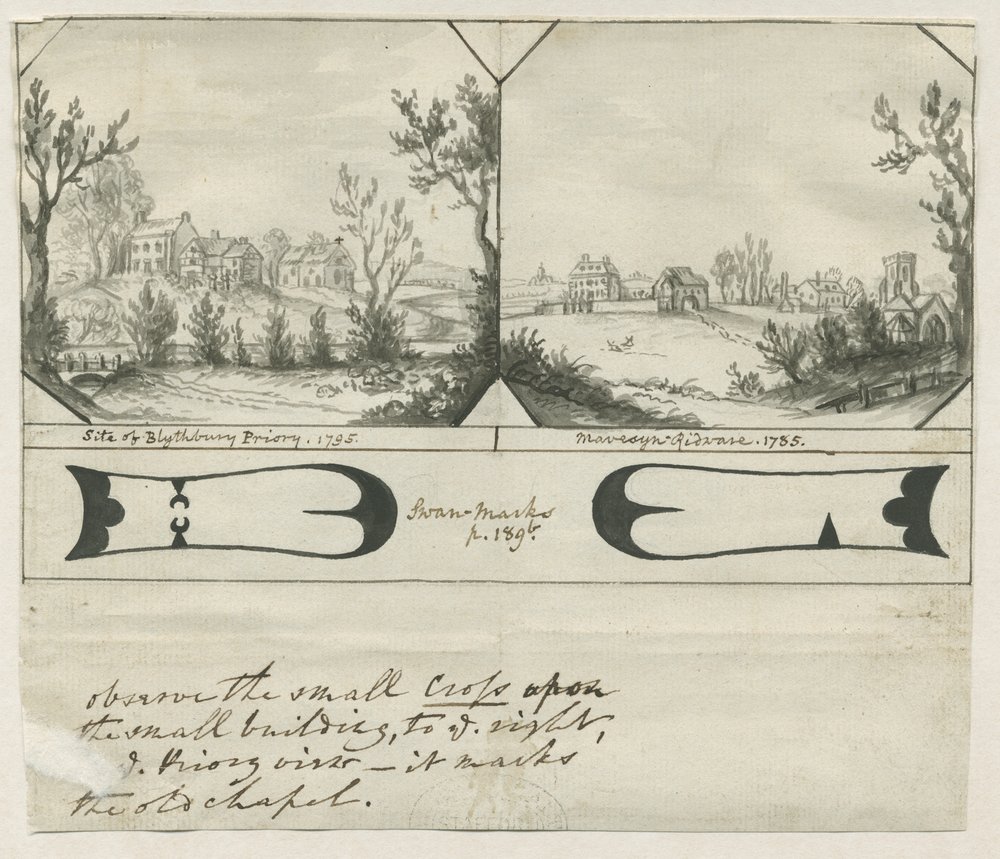 Site of Blythbury Priory. 1795.
Mavesyn-Ridware. 1785.
Swan-Marks
p. 189b.
observe the small Cross upon
the small building, to ye. right,
ye. Priory view – it marks
the old chapel.
STAFFORD